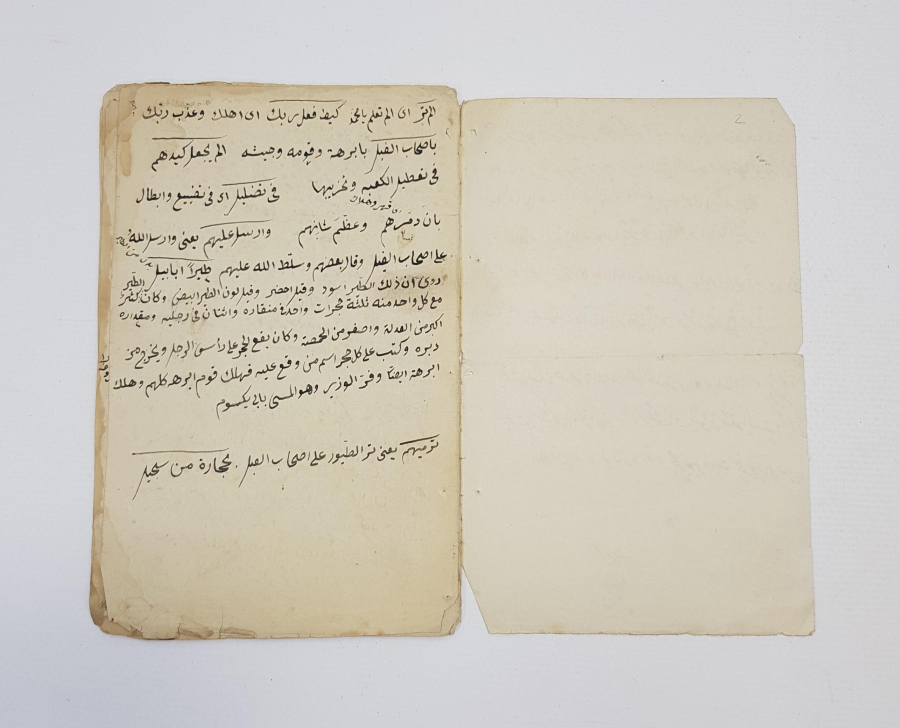 الم تر اى الم تعلم يا محمد كيف فعل ربك اى اهلك وعذب ربك
باصحاب الفيل بابرهة وقومه وجيشه الم يجعل كيدهم
فى تعطيل الكعبه وتخريبها فى تضليل اى فى تضييع وابطال
بان دمرهم وعظم شانهم وارسل عليهم يعنى وارسل الله
على اصحاب الفيل وقال بعضهم وسلط الله عليهم طيرا ابابيل
روى ان ذلك الطير اسود وقيل اخضر وقيل لون الطير ابيض وكان الطير
مع كل واحد منه ثلثة حجرات واحد فى منقاره واثنان فى رجليه ومقداره
اكبر من العدلة واصغر من الحمصة وكان يقع الحجر على رأس الرجل ويخرج من
دبره وكتب على كل حجر اسم من وقع عليه فهلك قوم ابرهه كلهم وهلك
ابرهة ايضا وفر الوزير وهو المسمى بابى يكسوم
ترميهم يعنى تر الطيور على اصحاب الفيل بحجارة من سجيل
2